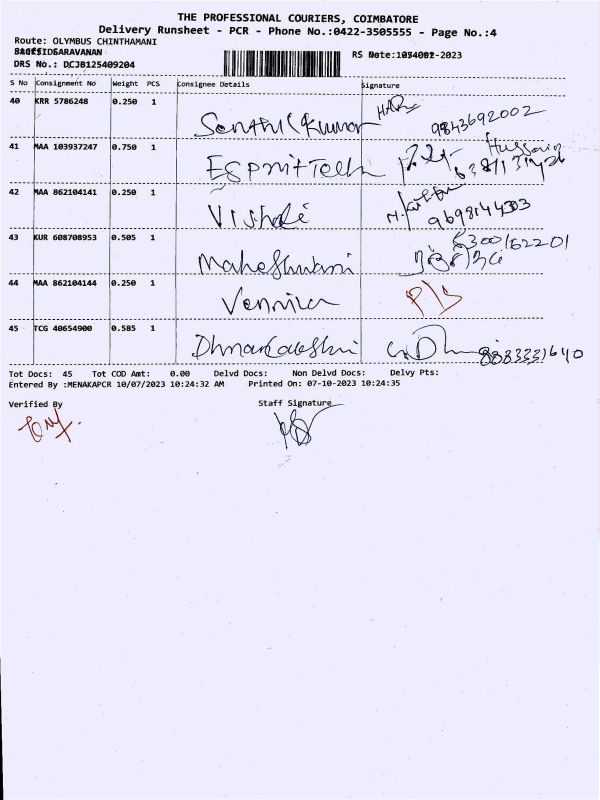 THE PROFESSIONAL COURIERS, COIMBATORE
Delivery Runsheet - PCR - Phone No.:0422-3505555 - Page No.:4
Route: OLYMBUS CHINTHAMANI
DRS No.: DCJB125409204
S No Consignment No Weight PCS Consignee Details Signature
40 KRR 5786248 0.250 1 Senthil Kumar 9843692002
41 MAA 103937247 0.750 1 Esprit Tech Hussain
42 MAA 862104141 0.250 1 Vishali 9698144303
43 KUR 608708953 0.505 1 Maheshwari 6300162201
44 MAA 862104144 0.250 1 Vennila
45 TCG 40654900 0.585 1 8883331640
Tot Docs: 45 Tot COD Amt: 0.00 Delvd Docs: Non Delvd Docs: Delvy Pts:
Entered By :MENAKAPCR 10/07/2023 10:24:32 AM Printed On: 07-10-2023 10:24:35
Verified By Staff Signature